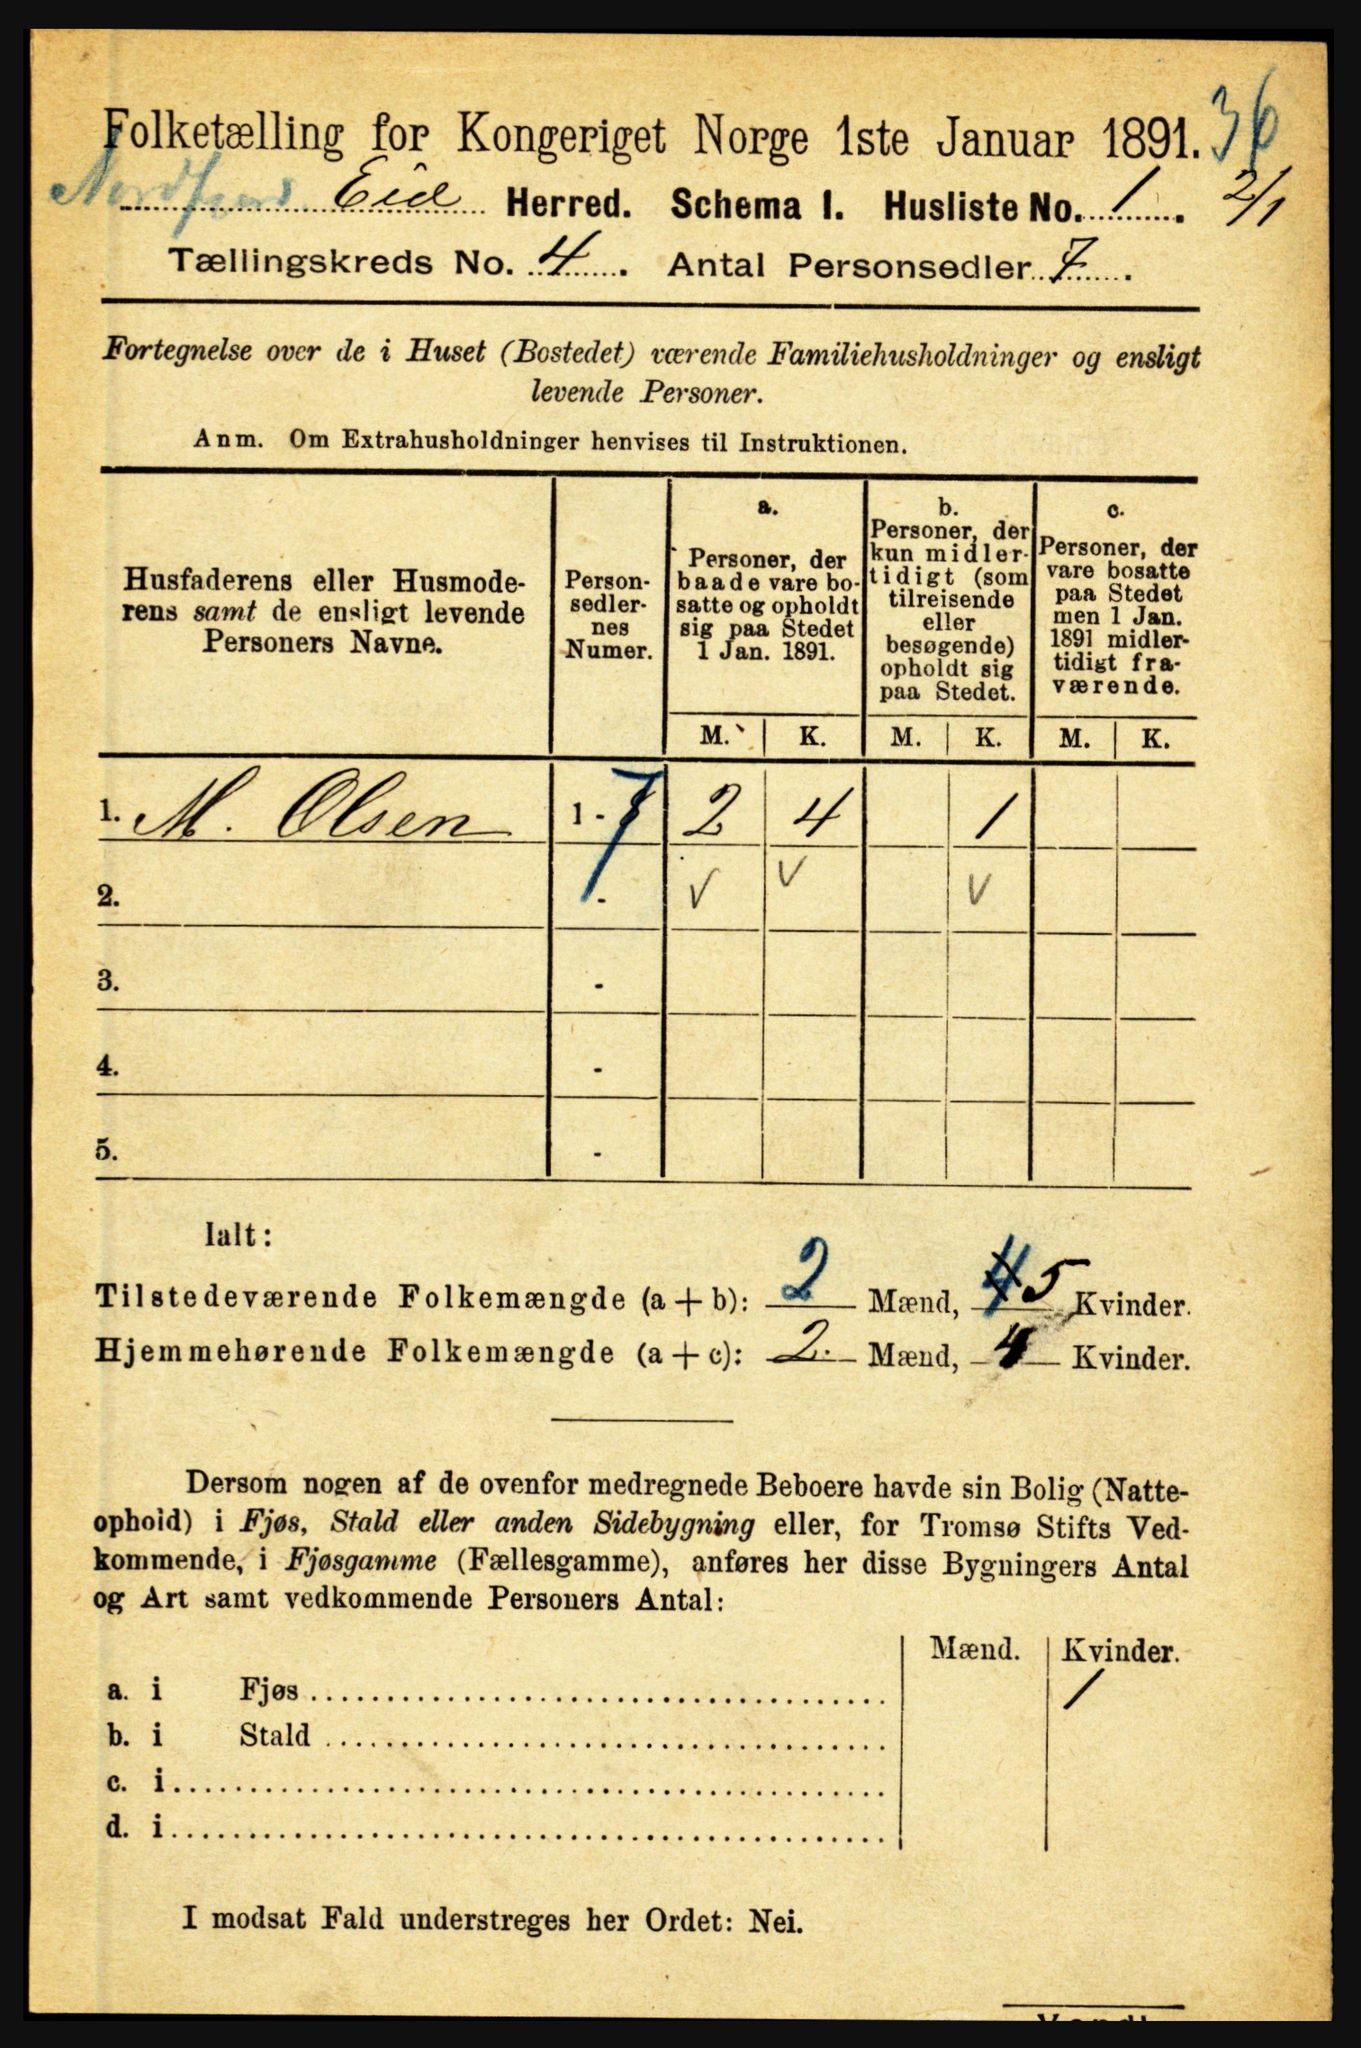 Folketælling for Kongeriget Norge 1ste Januar 1891. 36
Nordfjord Eid Herred. Schema I. Husliste No. 1. 2/1
Tællingskreds No. 4. Antal Personsedler 7.
Fortegnelse over de i Huset (Bostedet) værende Familiehusholdninger og ensligt
levende Personer.
Anm. Om Extrahusholdninger henvises til Instruktionen.
Husfaderens eller Husmode-
rens samt de ensligt levende
Personers Navne.
Person-
sedler-
nes
Numer.
a.
Personer, der
baade vare bo-
satte og opholdt
sig paa Stedet
1 Jan. 1891.
b.
Personer, der
kun midler-
tidigt (som
tilreisende
eller
besøgende)
opholdt sig
paa Stedet.
c.
Personer, der
vare bosatte
paa Stedet
men 1 Jan.
1891 midler-
tidigt fra-
værende.
M. K. M. K. M. K.
1. M. Olsen 1 - 7 2 4 1
2. - √ √ √
3. -
4. -
5. -
Ialt:
Tilstedeværende Folkemængde (a + b): 2 Mænd, 4 5 Kvinder.
Hjemmehørende Folkemængde (a + c): 2. Mænd, 4 Kvinder.
Dersom nogen af de ovenfor medregnede Beboere havde sin Bolig (Natte-
ophold) i Fjøs, Stald eller anden Sidebygning eller, for Tromsø Stifts Ved-
kommende, i Fjøsgamme (Fællesgamme), anføres her disse Bygningers Antal
og Art samt vedkommende Personers Antal:
Mænd. Kvinder.
a. i Fjøs 1
b. i Stald
c. i
d. i
I modsat Fald understreges her Ordet: Nei.